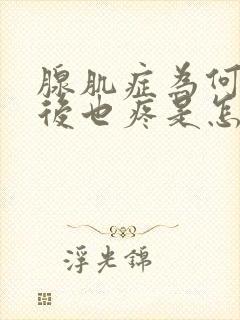 腺肌症為何
後也疼是怎
浮光錦